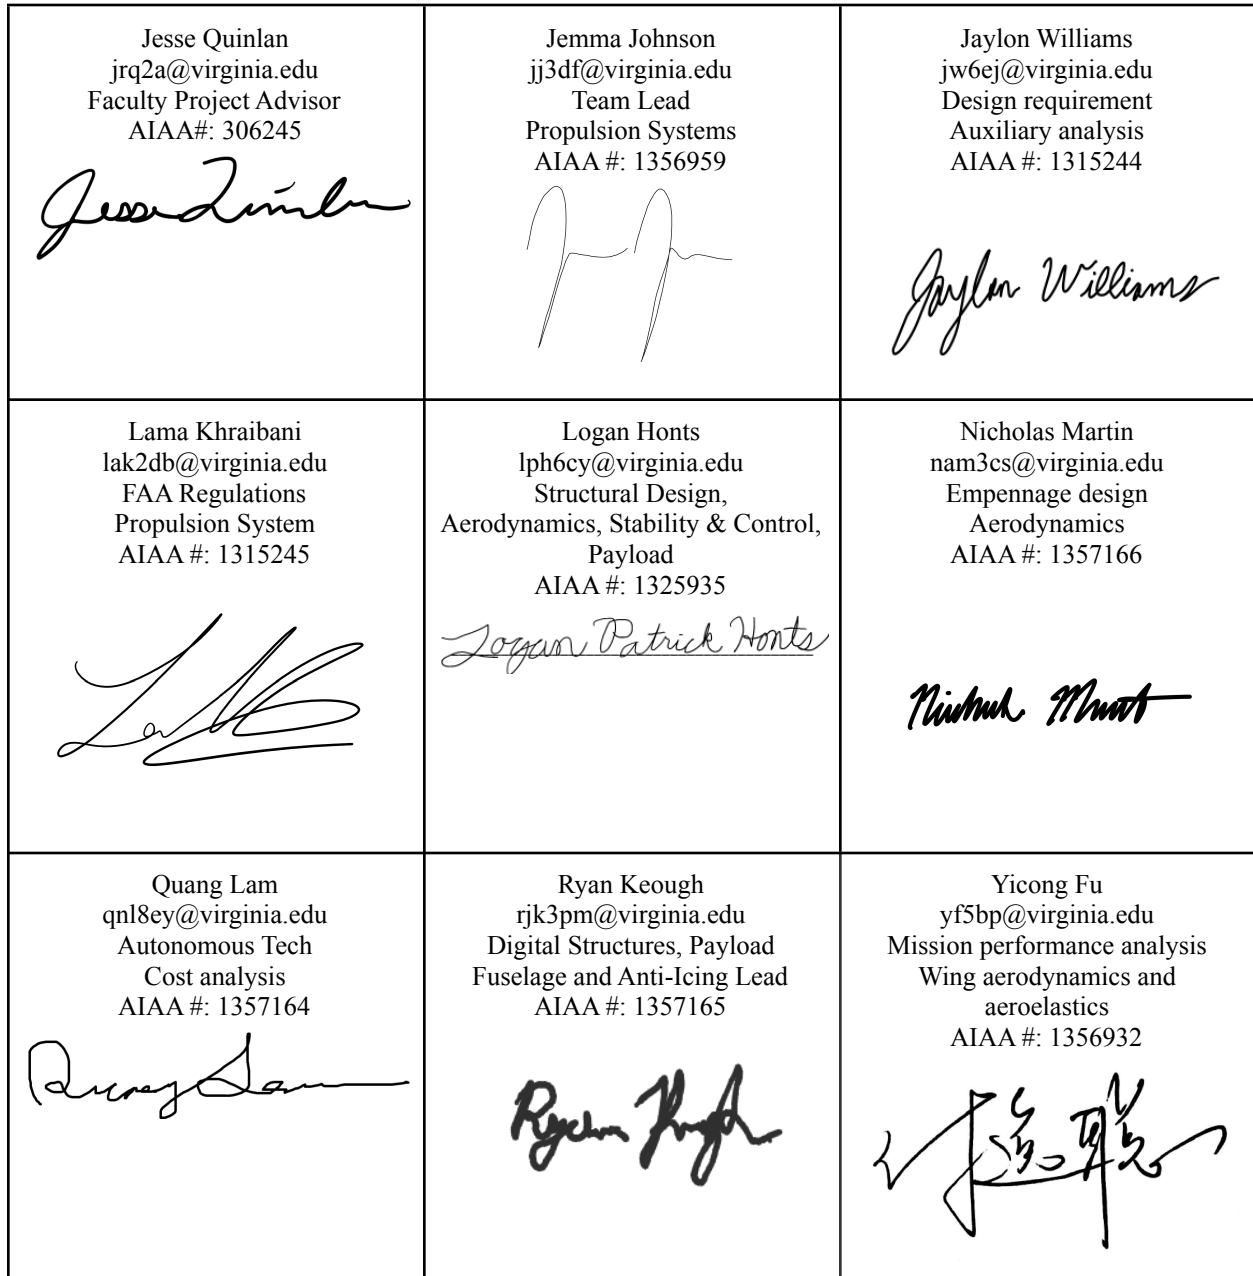 Jesse Quinlan
jrq2a@virginia.edu
Faculty Project Advisor
AIAA#: 306245
Jesse Quinlan
Jemma Johnson
jj3df@virginia.edu
Team Lead
Propulsion Systems
AIAA #: 1356959
Jaylon Williams
jw6ej@virginia.edu
Design requirement
Auxiliary analysis
AIAA #: 1315244
Jaylon Williams
Lama Khraibani
lak2db@virginia.edu
FAA Regulations
Propulsion System
AIAA #: 1315245
Logan Honts
lph6cy@virginia.edu
Structural Design,
Aerodynamics, Stability & Control,
Payload
AIAA #: 1325935
Logan Patrick Honts
Nicholas Martin
nam3cs@virginia.edu
Empennage design
Aerodynamics
AIAA #: 1357166
Quang Lam
qnl8ey@virginia.edu
Autonomous Tech
Cost analysis
AIAA #: 1357164
Quang Lam
Ryan Keough
rjk3pm@virginia.edu
Digital Structures, Payload
Fuselage and Anti-Icing Lead
AIAA #: 1357165
Ryan Keough
Yicong Fu
yf5bp@virginia.edu
Mission performance analysis
Wing aerodynamics and
aeroelastics
AIAA #: 1356932